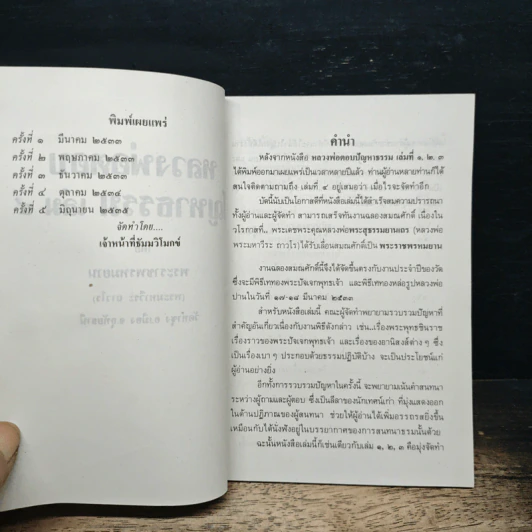 พิมพ์เผยแพร่
ครั้งที่ ๑ มีนาคม ๒๕๓๓
ครั้งที่ ๒ พฤษภาคม ๒๕๓๓
ครั้งที่ ๓ ธันวาคม ๒๕๓๓
ครั้งที่ ๔ ตุลาคม ๒๕๓๔
ครั้งที่ ๕ มิถุนายน ๒๕๓๕
จัดทำโดย....
เจ้าหน้าที่ธัมมวิโมกข์
คำนำ
หลังจากหนังสือ หลวงพ่อตอบปัญหาธรรม เล่มที่ ๑, ๒, ๓
ได้พิมพ์ออกมาเผยแพร่เป็นเวลาหลายปีแล้ว ท่านผู้อ่านหลายท่านก็ได้
สนใจติดตามถามถึง เล่มที่ ๔ อยู่เสมอว่า เมื่อไรจะจัดทำอีก
บัดนี้นับเป็นโอกาสดีที่หนังสือเล่มนี้ได้สำเร็จสมความปรารถนา
ทั้งผู้อ่านและผู้จัดทำ สามารถเสร็จทันงานฉลองสมณศักดิ์ เนื่องใน
วโรกาสที่.. พระเดชพระคุณหลวงพ่อพระสุธรรมยานเถร (หลวงพ่อ
พระมหาวีระ ถาวโร) ได้รับเลื่อนสมณศักดิ์เป็น พระราชพรหมยาน
งานฉลองสมณศักดิ์นี้จึงได้จัดขึ้นตรงกับงานประจำปีของวัด
ซึ่งจะมีพิธีเททองพระปัจเจกพุทธเจ้า และพิธีเททองหล่อรูปหลวงพ่อ
ปานในวันที่ ๑๗-๑๘ มีนาคม ๒๕๓๓
สำหรับหนังสือเล่มนี้ คณะผู้จัดทำพยายามรวบรวมปัญหาที่
สำคัญอันเกี่ยวเนื่องกับงานพิธีดังกล่าว เช่น..เรื่องพระพุทธชินราช
เรื่องราวของพระปัจเจกพุทธเจ้า และเรื่องของอานิสงส์ต่าง ๆ ซึ่ง
เป็นเรื่องเบา ๆ ประกอบด้วยธรรมปฏิบัติบ้าง จะเป็นประโยชน์แก่
ผู้อ่านอย่างยิ่ง
อีกทั้งการรวบรวมปัญหาในครั้งนี้ จะพยายามเน้นคำสนทนา
ระหว่างผู้ถามและผู้ตอบ ซึ่งเป็นลีลาของนักเทศน์เก่า ที่มุ่งแสดงออก
ในด้านปฏิภาณของผู้สนทนา ช่วยให้ผู้อ่านได้เพิ่มอรรถรสยิ่งขึ้น
เหมือนกับได้นั่งฟังอยู่ในบรรยากาศของการสนทนาธรรมนั้นด้วย
ฉะนั้นหนังสือเล่มนี้ก็เช่นเดียวกับเล่ม ๑, ๒, ๓ คือมุ่งจัดทำ